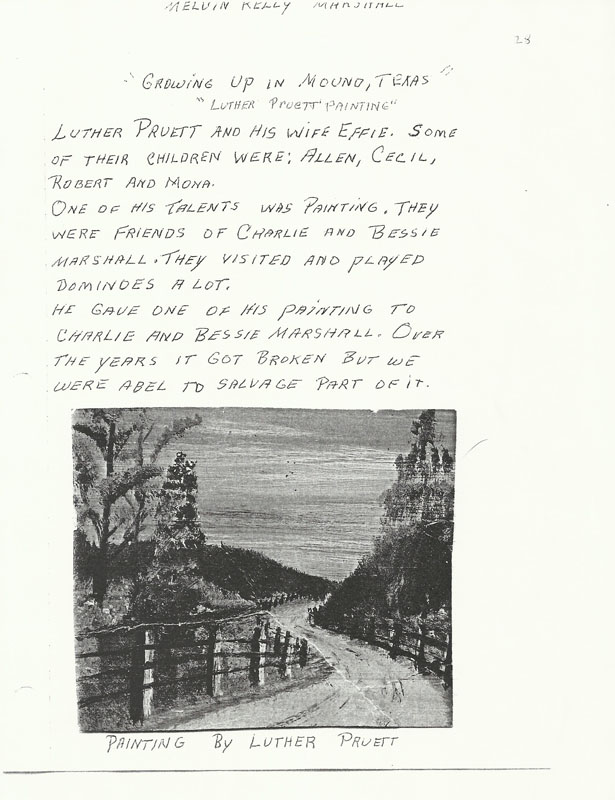 MELVIN KELLY MARSHALL
28
"GROWING UP IN MOUND, TEXAS"
"LUTHER PRUETT PAINTING"
LUTHER PRUETT AND HIS WIFE EFFIE. SOME
OF THEIR CHILDREN WERE; ALLEN, CECIL,
ROBERT AND MONA.
ONE OF HIS TALENTS WAS PAINTING. THEY
WERE FRIENDS OF CHARLIE AND BESSIE
MARSHALL. THEY VISITED AND PLAYED
DOMINOES A LOT.
HE GAVE ONE OF HIS PAINTING TO
CHARLIE AND BESSIE MARSHALL. OVER
THE YEARS IT GOT BROKEN BUT WE
WERE ABEL TO SALVAGE PART OF IT.
PAINTING BY LUTHER PRUETT